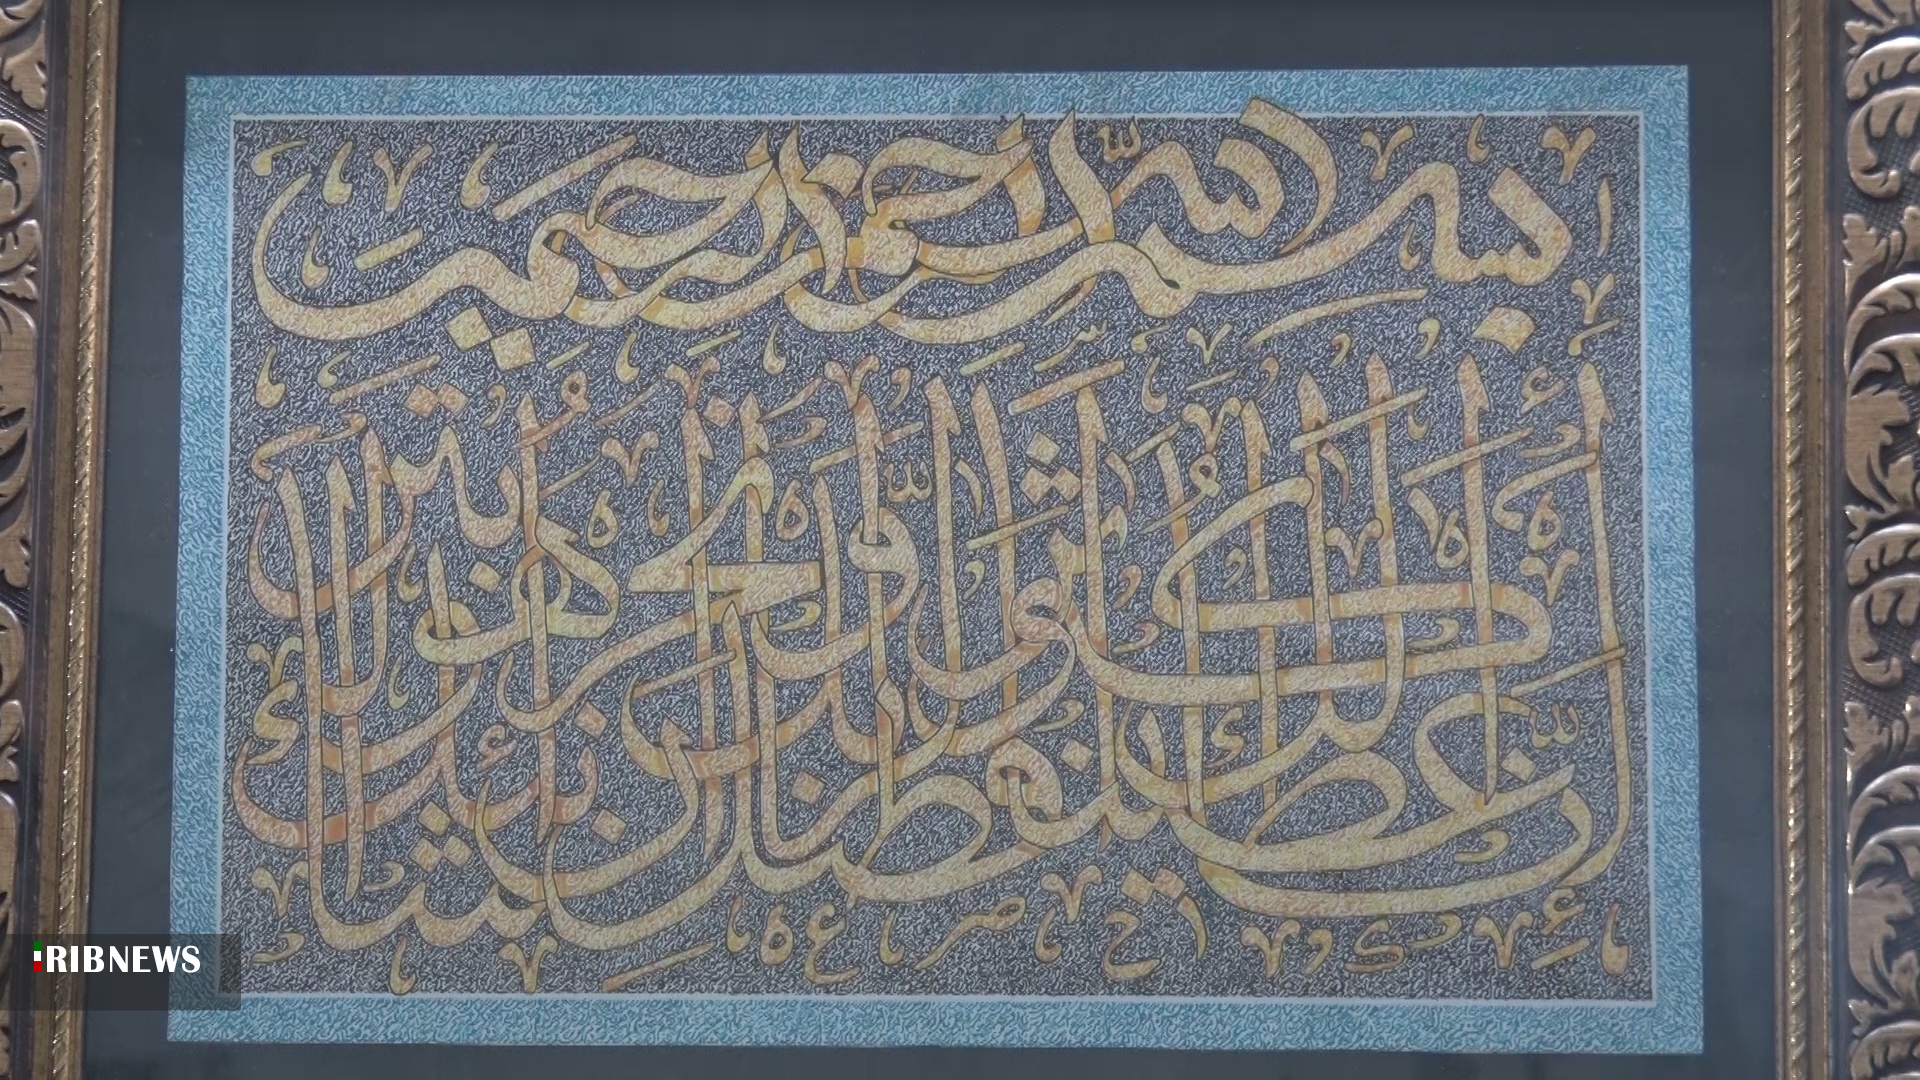 بسم الله الرحمن الرحيم
إنا أعطيناك الكوثر فصل لربك وانحر إن شانئك هو الأبتر
IRIBNEWS